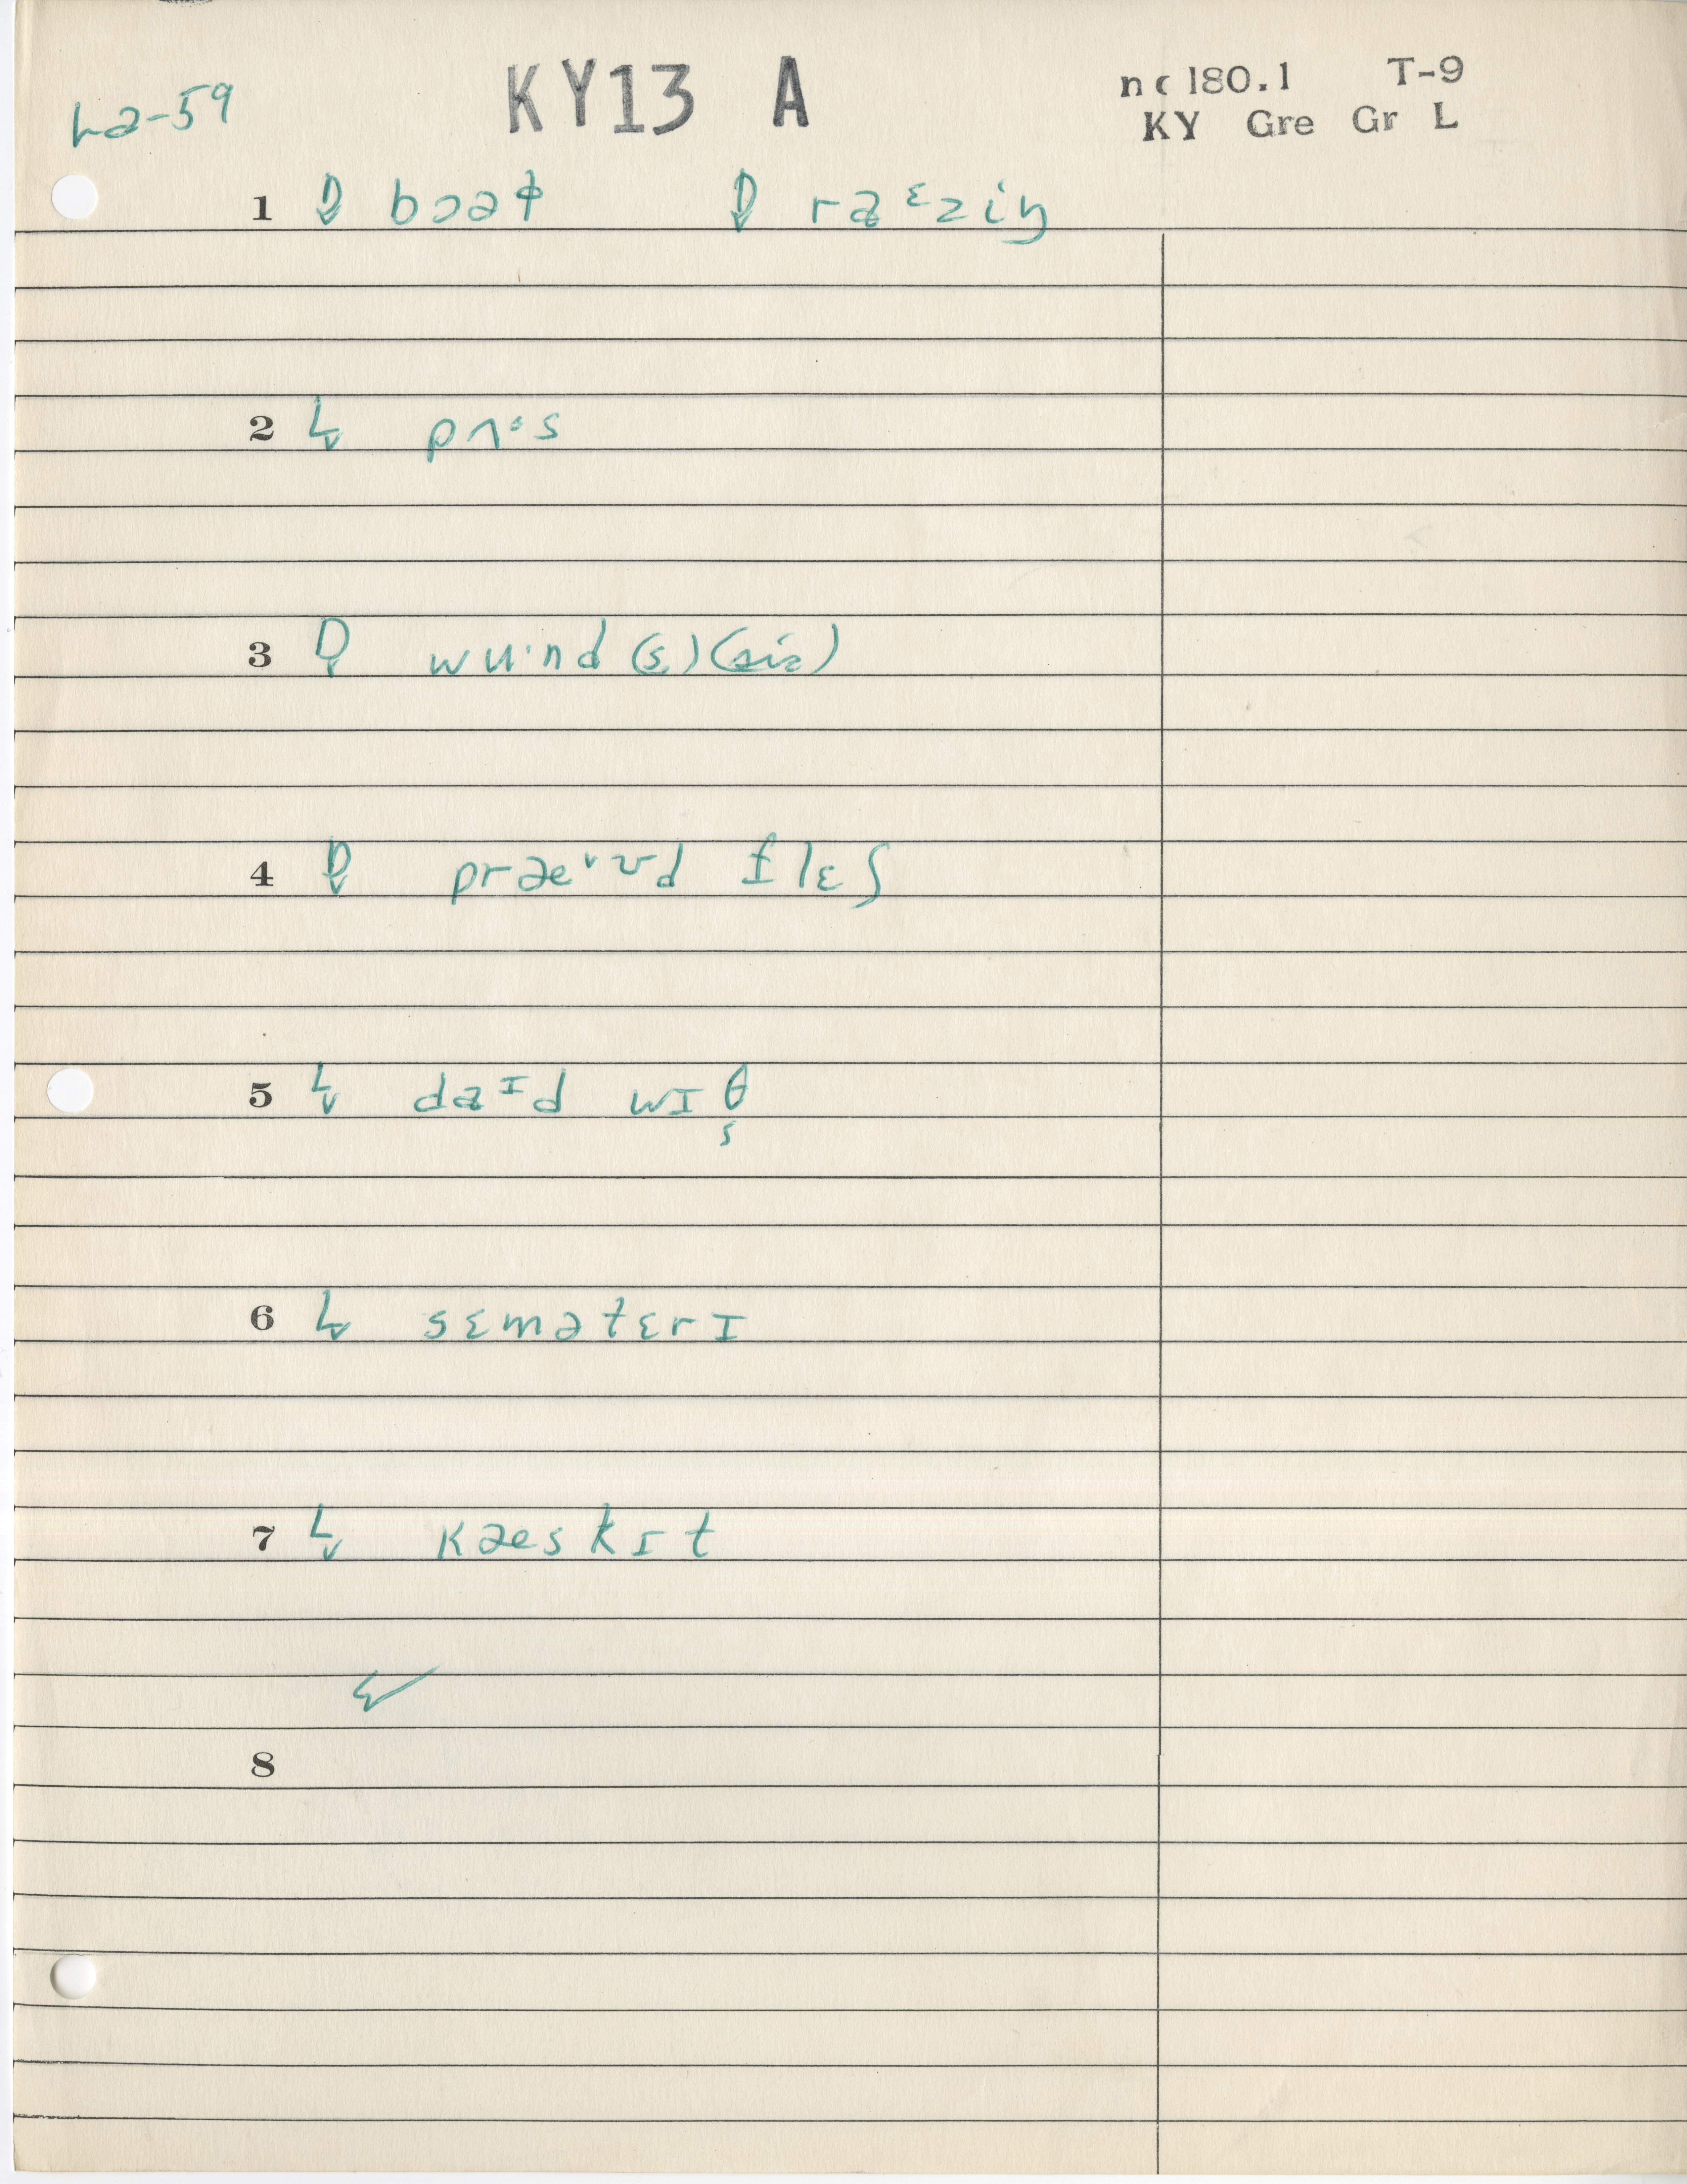 La-59 KY13 A nc 180.1 T-9
KY Gre Gr L
1 D boat D raᵋziŋ
2 L pʌˑs
3 D wuˑnd (s) (sic)
4 D præᵛʊd flɛʃ
5 L daᶦd wɪθ
s
6 L sɛmətɛrɪ
7 L kæskɪt
8